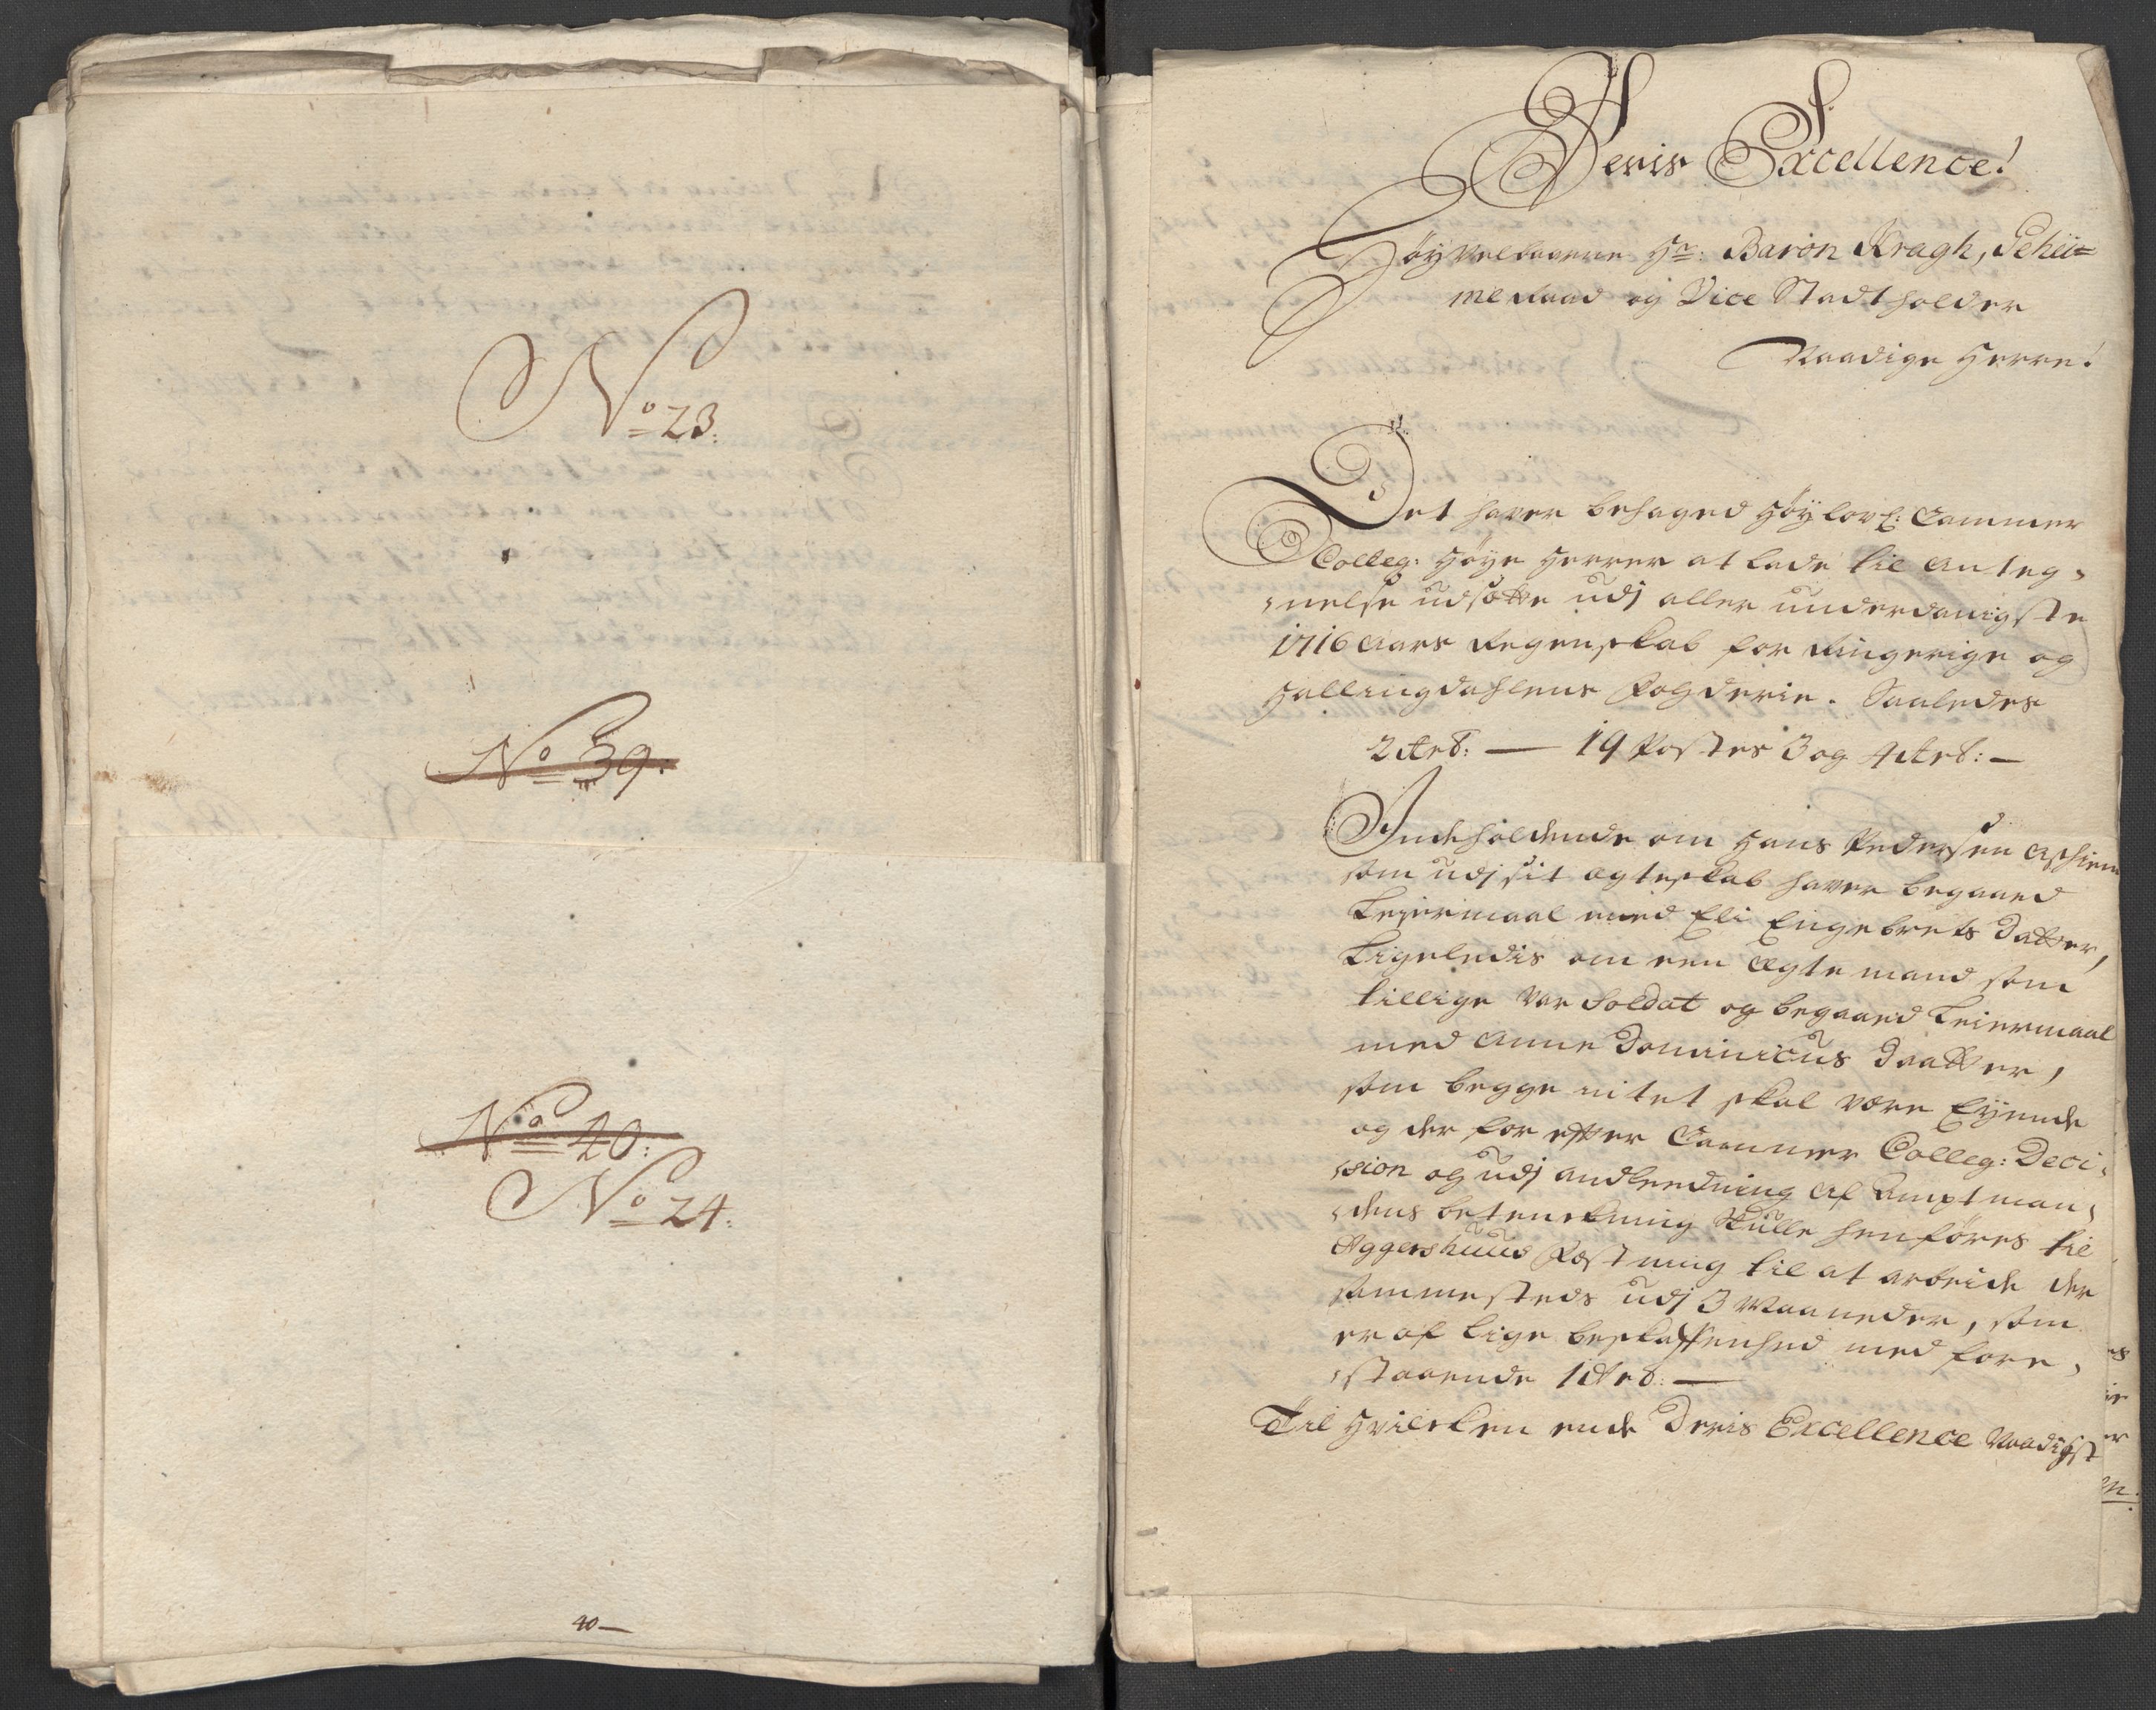 No 23.
No 39.
No 40.
No 24.
40—
Deris Excellence!
Høyvelbaarne Hr: Baron Kragh, Gehei=
me Raad og Vice Stadtholder
Naadige Herre!
Det haver behaged Høylovl: Cammer
Colleg: Høye Herrer at lade til Anteg-
-nelse udsætte udj aller underdanigste
1716 Aars Regenskab for Ringerige og
Hallingdahlens Fogderie. Saaledes
2 Art: — 19 Postes 3 og 4 Art: —
Indeholdende om Hans Pedersen
som udj sit ægteskab haver begaaed
Leiermaal med Eli Engebrets Datter,
Ligeledis om een Ægte mand som
tillige var Soldat og begaaed Leiermaal
med Anne Dominicus Daatter,
som begge intet skal være Eyende
og der for efter Cammer Colleg: Deci-
-sion og udj andleedning af Amptman-
-dens betenckning skulle henføres til
Aggershuus Fæstning til at arbeide der
sammesteds udj 3 Maaneder, som
er af lige beskaffenhed med fore-
-staaende 1 Art: —
Til Hvilcken ende Deris Excellence Naadigst